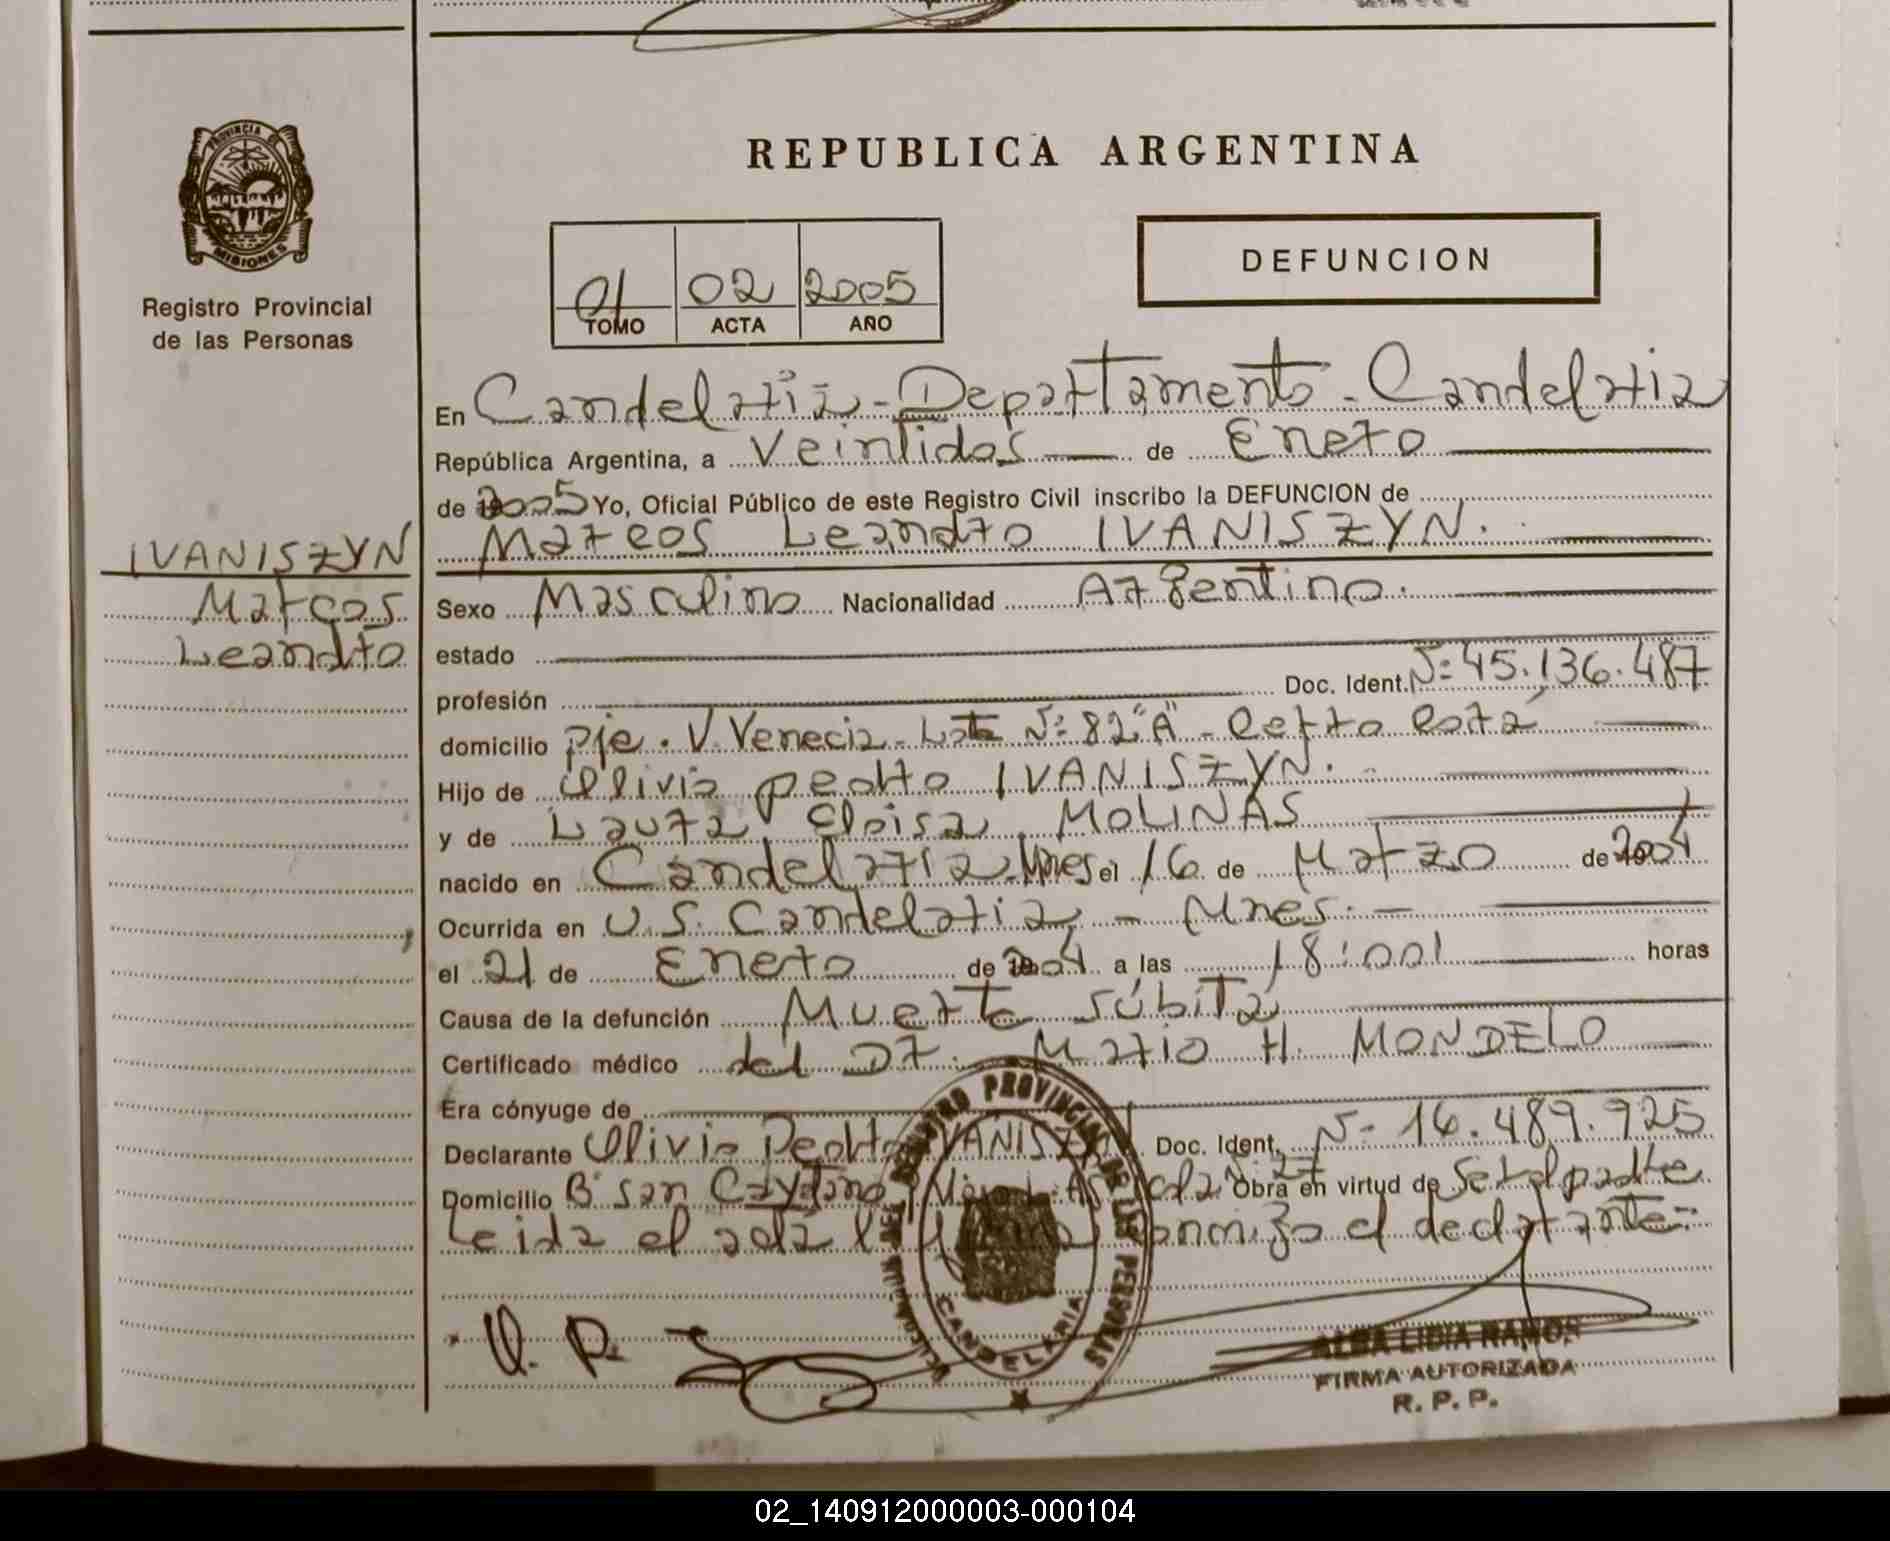 REPUBLICA ARGENTINA
PROVINCIA DE
MISIONES
Registro Provincial
de las Personas
01 02 2005
TOMO ACTA AÑO
DEFUNCION
En Candelaria - Departamento - Candelaria
República Argentina, a Veintidos de Enero
de 2005 Yo, Oficial Público de este Registro Civil inscribo la DEFUNCION de
Marcos Leandro IVANISZYN.
IVANISZYN
Marcos
Leandro
Sexo Masculino Nacionalidad Argentino.
estado
profesión Doc. Ident. Nº 45.136.487
domicilio Pje. V. Venecia - Lote Nº 82 "A" - Cerro Corá
Hijo de Olivio Pedro IVANISZYN.
y de Laura Eloisa MOLINAS
nacido en Candelaria - Mnes el 16 de Marzo de 2004
Ocurrida en U.S. Candelaria - Mnes. -
el 21 de Enero de 2004 a las 18:00 horas
Causa de la defunción Muerte súbita
Certificado médico del Dr. Mario H. MONDELO
Era cónyuge de
Declarante Olivio Pedro IVANISZYN Doc. Ident. Nº 16.489.925
Domicilio Bº San Caytano Obra en virtud de Ser el padre
Leida el acta la firma conmigo el declarante=
PROVINCIAL DE LAS PERSONAS
CANDELARIA
O. P.
ALBA LIDIA RAMOS
FIRMA AUTORIZADA
R. P. P.
02_140912000003-000104